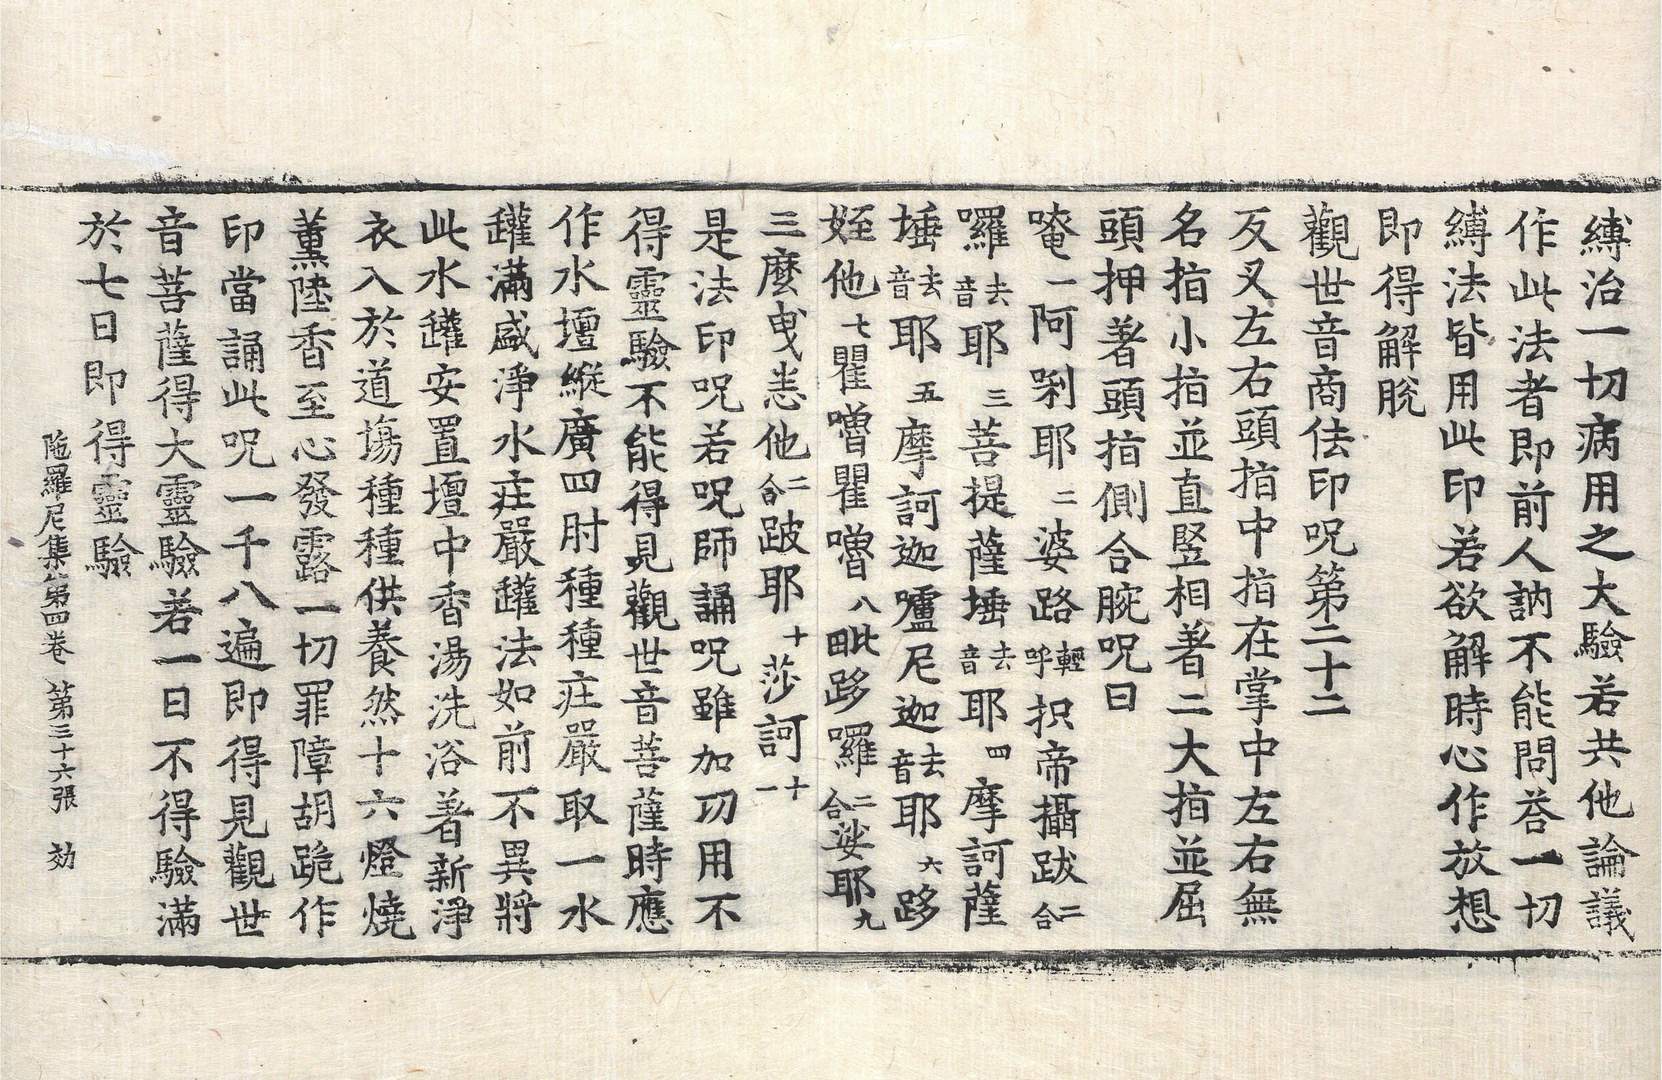 縛治一切病用之大驗若共他論議
作此法者即前人訥不能問荅一切
縛法皆用此印若欲解時心作放想
即得解脫
觀世音商佉印呪第二十二
反叉左右頭指中指在掌中左右無
名指小指並直竪相著二大指並屈
頭押著頭指側合腕呪曰
唵一阿唎耶二婆路輕呼抧帝攝跋二合
囉去音耶三菩提薩埵去音耶四摩訶薩
埵去音耶五摩訶迦嚧尼迦去音耶六跢
姪他七瞿嚕瞿嚕八毗跢囉二合娑耶九
三麼曳恙他二合跛耶十莎訶十一
是法印呪若呪師誦呪雖加功用不
得靈驗不能得見觀世音菩薩時應
作水壇縱廣四肘種種莊嚴取一水
罐滿盛淨水莊嚴罐法如前不異將
此水罐安置壇中香湯洗浴著新淨
衣入於道塲種種供養然十六燈燒
薰陸香至心發露一切罪障胡跪作
印當誦此呪一千八遍即得見觀世
音菩薩得大靈驗若一日不得驗滿
於七日即得靈驗
陁羅尼集第四卷 第三十六張 効